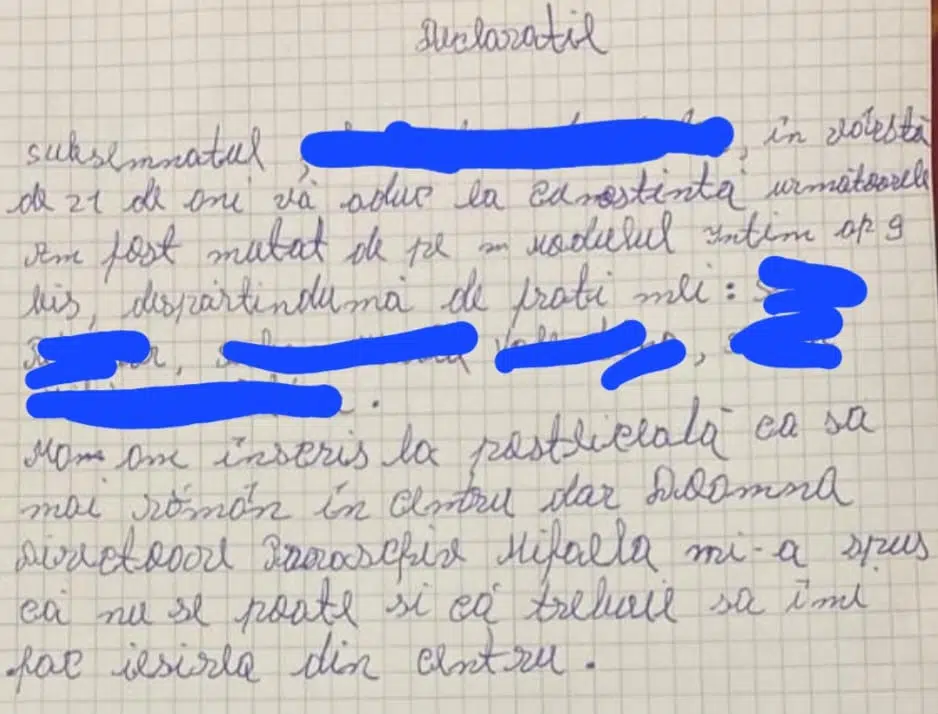 Declaratie
subsemnatul, , în vârestă
de 21 de ani vă aduc la cunostintă următoarele
Am fost mutat de pe modulul intim ap 9
bis, despărtindumă de frati mei:
,
.
Mam am înscris la postliceală ca sa
mai rămân în centru dar Doamna
Directoare Paraschiv Mihaela mi-a spus
că nu se poate si că trebuie sa îmi
fac iesirea din centru.